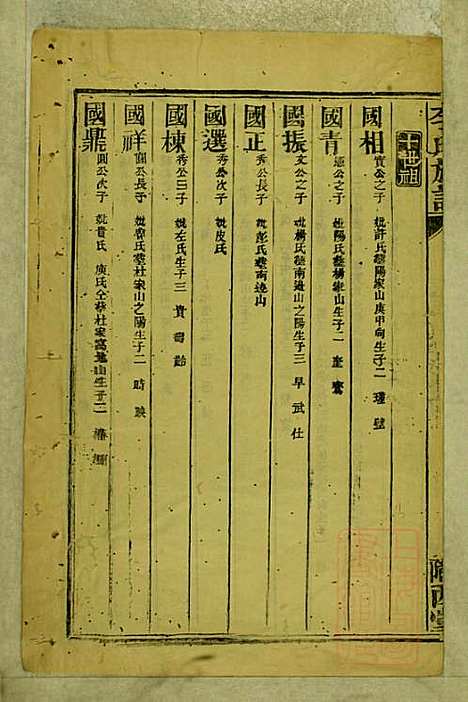 李氏族譜
十世祖
國相 實公之子 妣許氏葬陽家山庚甲向生子二 瑾 璧
國青 憲公之子 妣陽氏葬楊家山生子二 奎
國振 文公之子 妣楊氏葬南邊山之陽生子三 早 武 仕
國正 秀公長子 妣彭氏葬南邊山
國選 秀公次子 妣皮氏
國棟 秀公三子 妣左氏生子三 貴
國祥 圓公長子 妣曹氏葬杜家山之陽生子二 時 映
國鼎 圓公次子 妣貴氏 庾氏仝葬杜家窩地山生子二
隴西堂